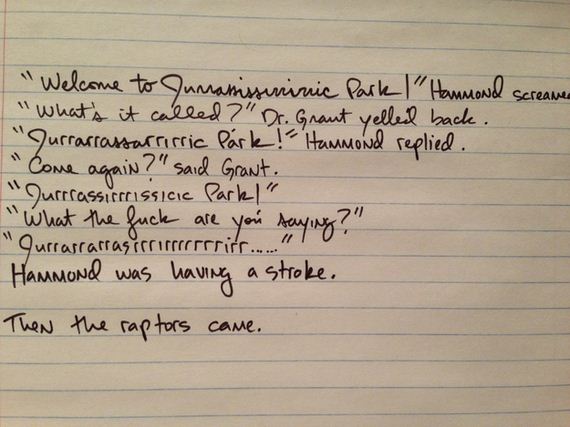 "Welcome to Jurrarrissirrirric Park!" Hammond screamed
"What's it called?" Dr. Grant yelled back.
"Jurrarrassarrirric Park!" Hammond replied.
"Come again?" said Grant.
"Jurrrassirrrissicic Park!"
"What the fuck are you saying?"
"Jurrarrarrasirrrirrrrrrrirr....."
Hammond was having a stroke.
Then the raptors came.